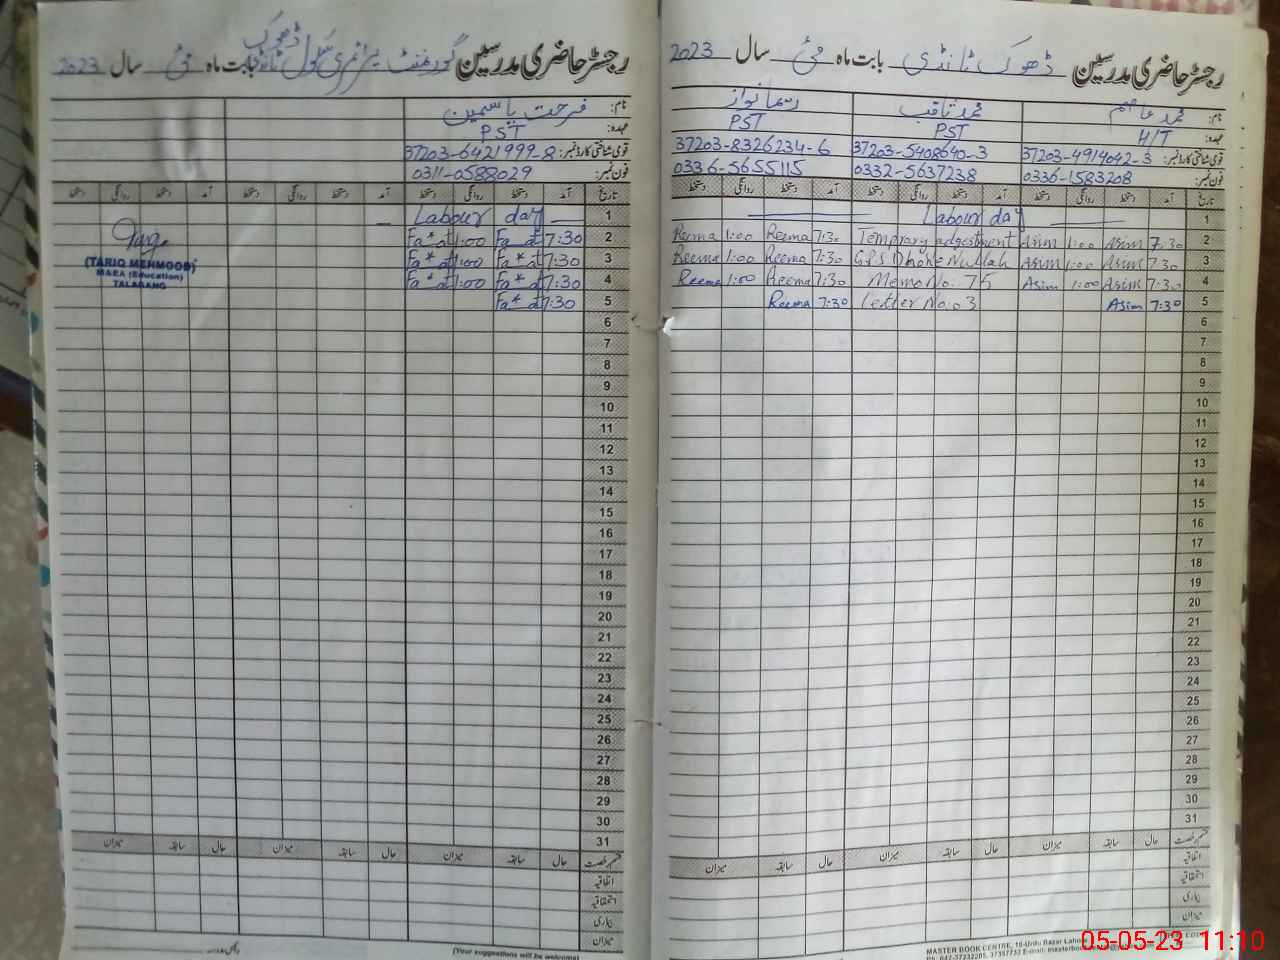 رجسٹر حاضری مدرسین ڈھوک ٹانڈی بابت ماہ مئی سال 2023
نام: محمد عاصم محمد ثاقب ریما نواز
عہدہ: H/T PST PST
قومی شناختی کارڈ نمبر: 37203-4914042-3 37203-5408640-3 37203-8326234-6
فون نمبر: 0336-1583208 0332-5637238 0336-5655115
تاریخ آمد دستخط روانگی دستخط آمد دستخط روانگی دستخط آمد دستخط روانگی دستخط
1 Labour day
2 7:30 Asim 1:00 Asim Temprary adgestment 7:30 Reema 1:00 Reema
3 7:30 Asim 1:00 Asim GPS Dhoke Nullah 7:30 Reema 1:00 Reema
4 7:30 Asim 1:00 Asim Memo No. 75 7:30 Reema 1:00 Reema
5 7:30 Asim Letter No. 03 7:30 Reema
6
7
8
9
10
11
12
13
14
15
16
17
18
19
20
21
22
23
24
25
26
27
28
29
30
31
قسم رخصت حال سابقہ میزان حال سابقہ میزان حال سابقہ میزان
اتفاقیہ
استحقاقیہ
بیماری
میزان
MASTER BOOK CENTRE, 16-Urdu Bazar Lahore
05-05-23 11:10
رجسٹر حاضری مدرسین گورنمنٹ پرائمری سکول ڈھوک ٹانڈی بابت ماہ مئی سال 2023
نام: فرحت یاسمین
عہدہ: PST
قومی شناختی کارڈ نمبر: 37203-6421999-8
فون نمبر: 0311-0588029
تاریخ آمد دستخط روانگی دستخط آمد دستخط روانگی دستخط آمد دستخط روانگی دستخط
1 Labour day
2 7:30 Fa*at 1:00 Fa*at
3 7:30 Fa*at 1:00 Fa*at
4 7:30 Fa*at 1:00 Fa*at
5 7:30 Fa*at
(TARIQ MEHMOOD)
MAEA (Education)
TALAGANG
6
7
8
9
10
11
12
13
14
15
16
17
18
19
20
21
22
23
24
25
26
27
28
29
30
31
قسم رخصت حال سابقہ میزان حال سابقہ میزان حال سابقہ میزان
اتفاقیہ
استحقاقیہ
بیماری
میزان
(Your suggestions will be welcome)